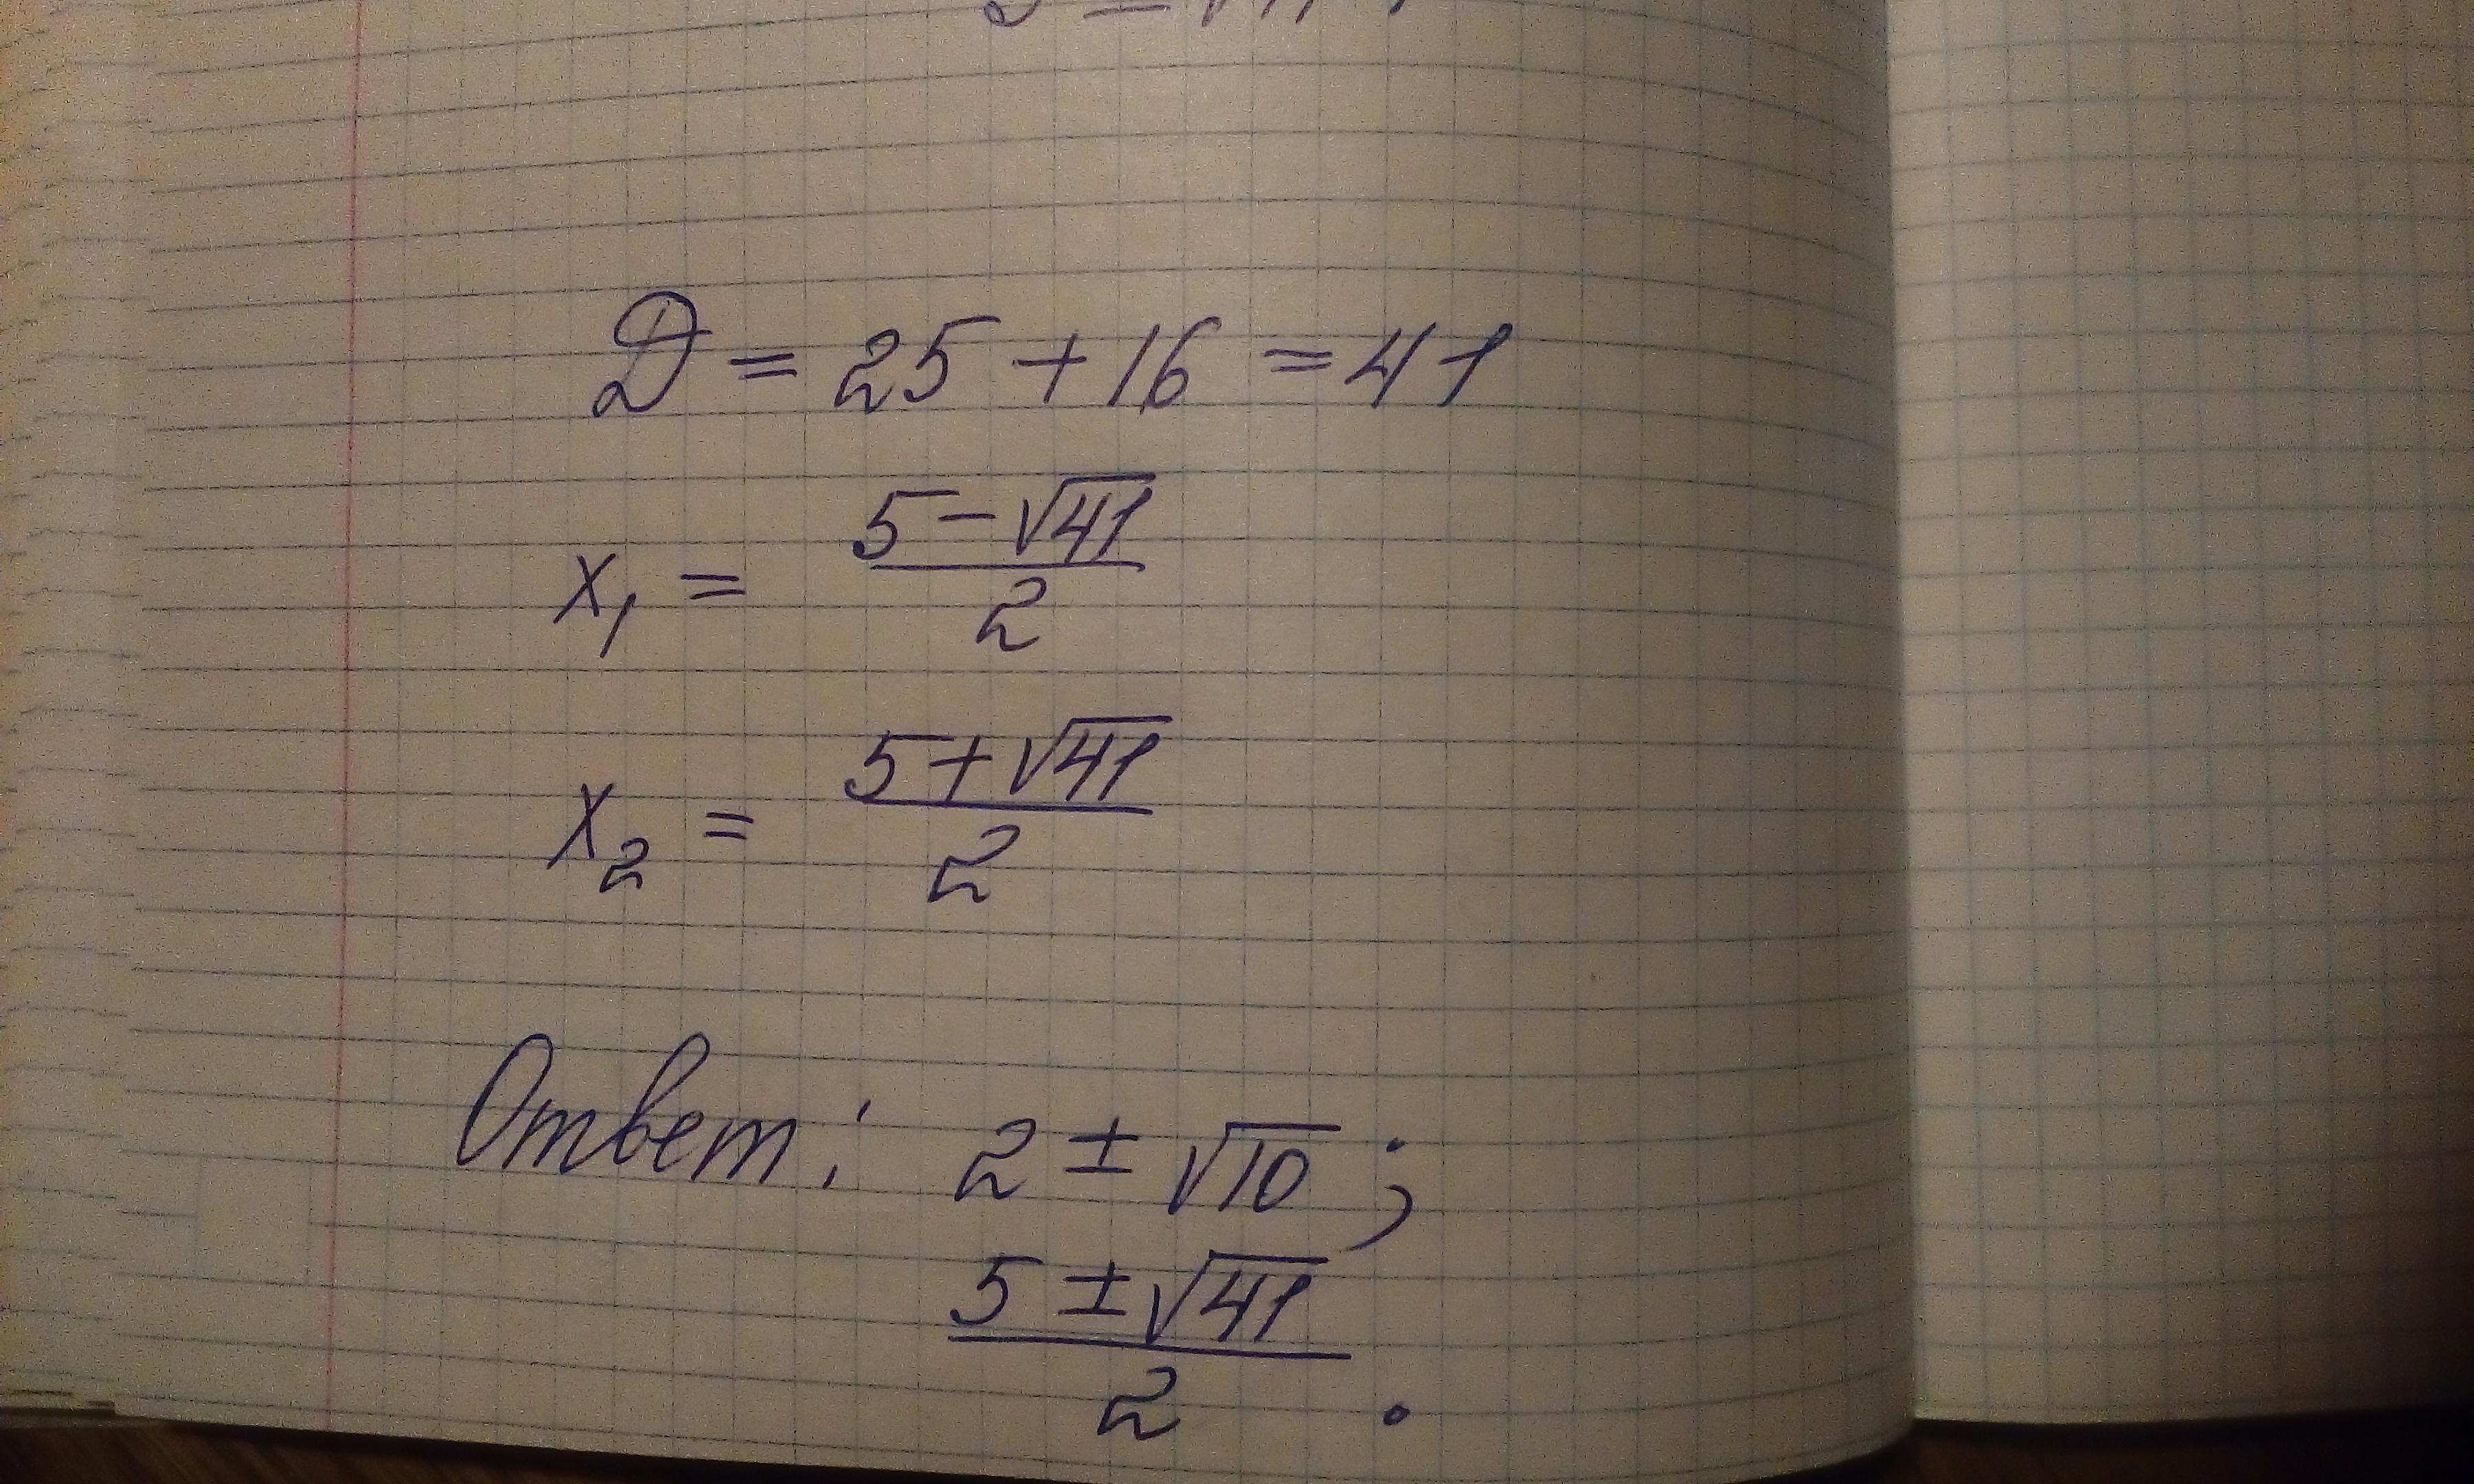 D = 25 + 16 = 41
x₁ = (5 − √41) / 2
x₂ = (5 + √41) / 2
Ответ: 2 ± √10 ;
(5 ± √41) / 2 .